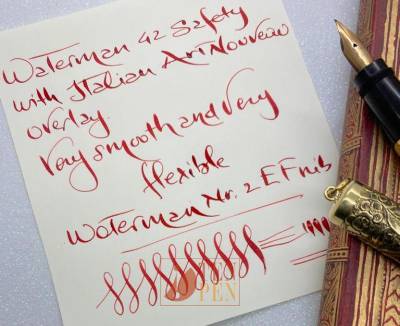 Waterman 42 Safety
with Italian Art Nouveau
overlay.
Very smooth and very
flexible
Waterman Nr. 2 EF nib
PEN